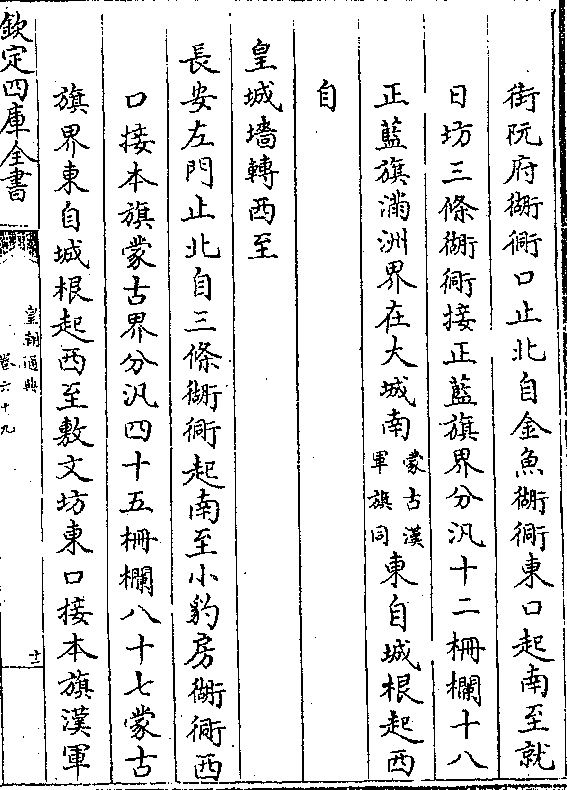 街阮府衚衕口止北自金魚衚衕東口起南至就
日坊三條衚衕接正藍旗界分汛十二柵欄十八
正藍旗滿洲界在大城南蒙古漢軍旗同東自城根起西
自
皇城墻轉西至
長安左門止北自三條衚衕起南至小豹房衚衕西
口接本旗蒙古界分汛四十五柵欄八十七蒙古
旗界東自城根起西至敷文坊東口接本旗漢軍
欽定四庫全書
皇朝通典
卷六十九